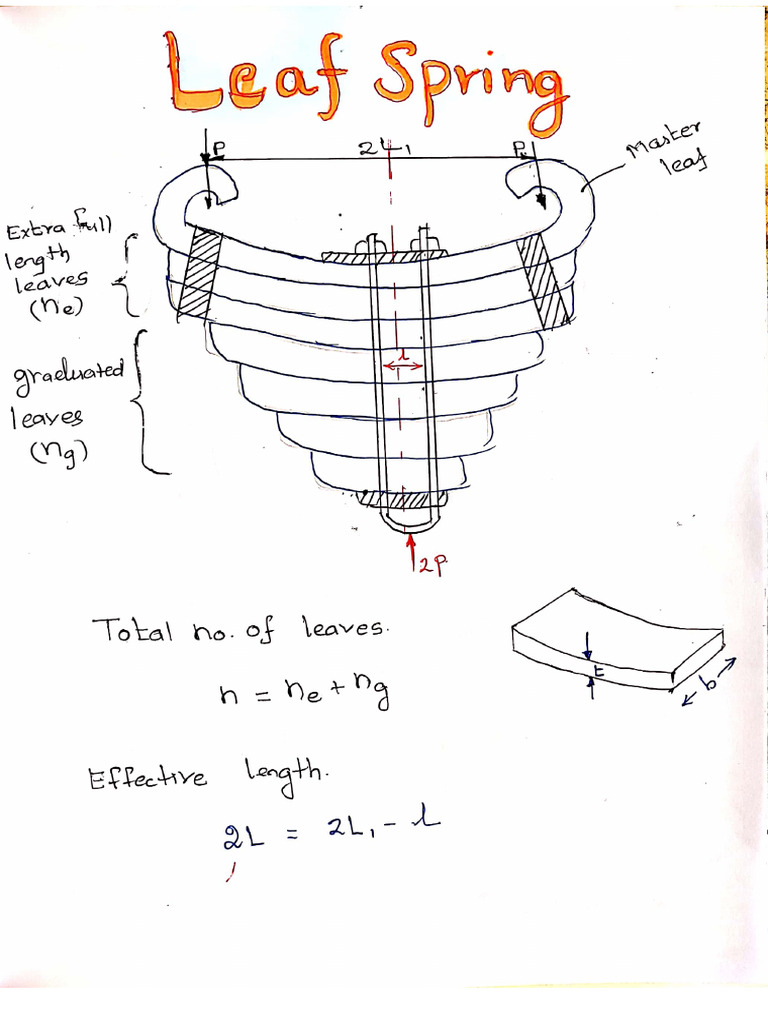 Leaf Spring
P 2L1 P
Master
leaf
Extra full
length
leaves
(ne)
l
graduated
leaves
(ng)
2P
Total no. of leaves.
n = ne + ng
t
b
Effective length.
2L = 2L1 - l